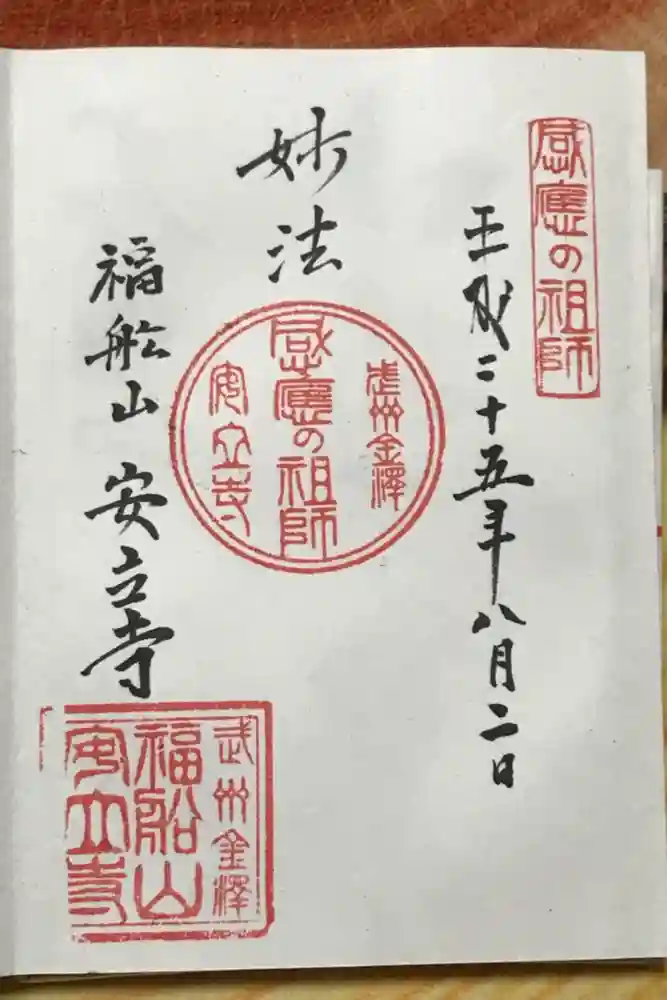 感應の祖師
平成二十五年八月二日
妙法
武州金澤
感應の祖師
安立寺
福舩山 安立寺
武州金澤
福船山
安立寺